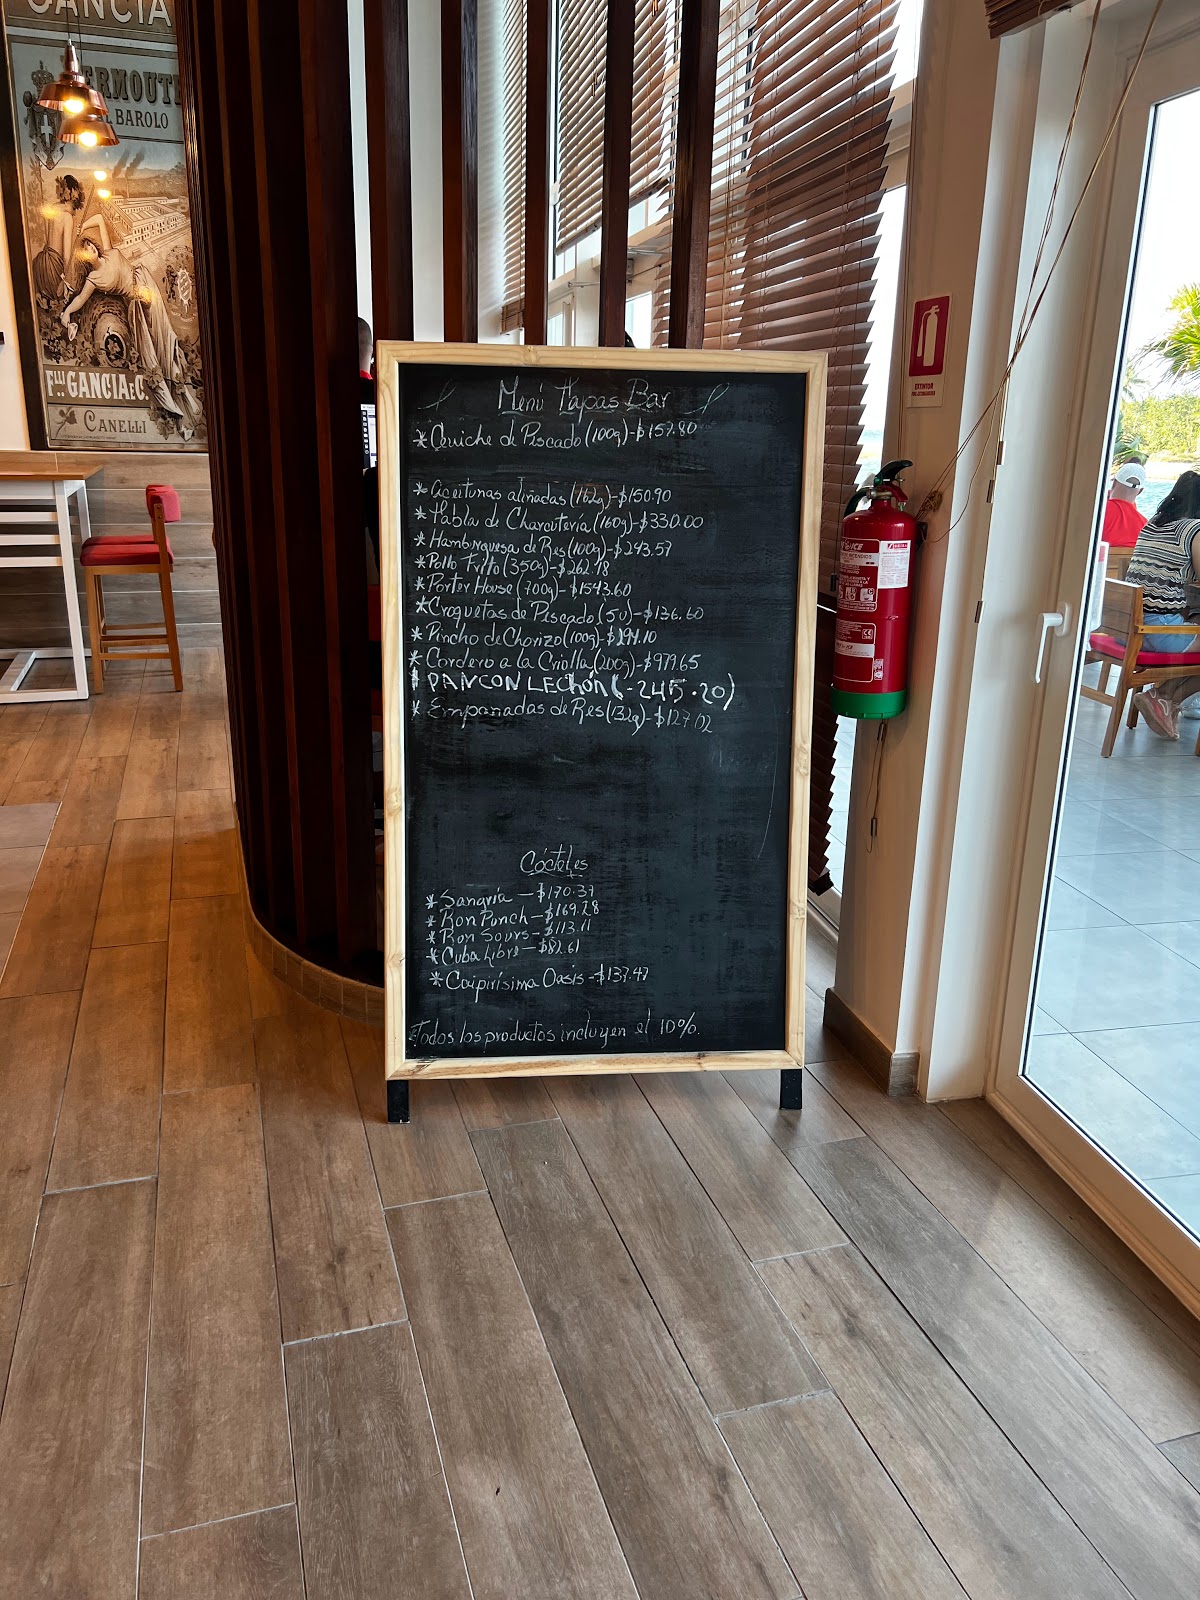 GANCIA
VERMOUTH
AL BAROLO
F.LLI GANCIA & C.
CANELLI
Menú Tapas Bar
*Ceviche de Pescado (100g)-$157.80
*Aceitunas aliñadas (162g)-$150.90
*Tabla de Charcutería (160g)-$330.00
*Hamburguesa de Res (100g)-$243.57
*Pollo Frito (350g)-$262.18
*Porter House (700g)-$1543.60
*Croquetas de Pescado (5u)-$136.60
*Pincho de Chorizo (100g)-$191.10
*Cordero a la Criolla (200g)-$979.65
* PAN CON LECHÓN (-245.20)
*Empanadas de Res (132g)-$127.02
Cócteles
*Sangría — $170.37
*Ron Punch — $169.28
*Ron Sours — $113.11
*Cuba Libre — $82.61
*Caipirísima Oasis -$137.47
Todos los productos incluyen el 10%.
EXTINTOR